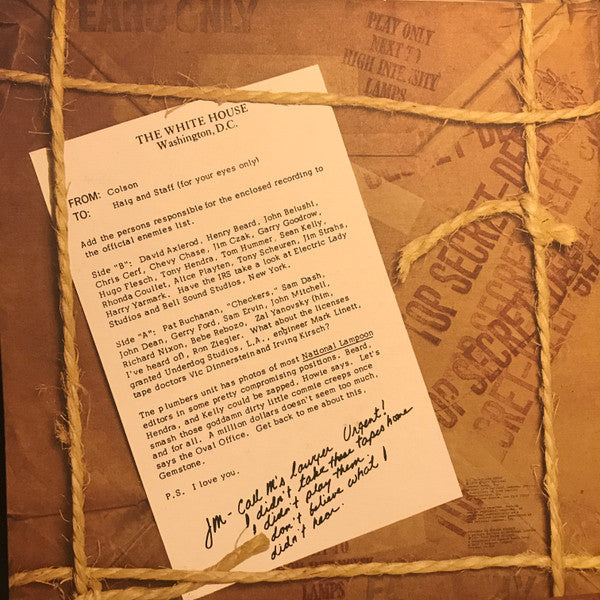 EARS ONLY
PLAY ONLY
NEXT TO
HIGH INTENSITY
LAMPS
THE WHITE HOUSE
Washington, D.C.
FROM: Colson
TO: Haig and Staff (for your eyes only)
Add the persons responsible for the enclosed recording to
the official enemies list.
Side "B": David Axlerod, Henry Beard, John Belushi,
Chris Cerf, Chevy Chase, Jim Czak, Garry Goodrow,
Hugo Flesch, Tony Hendra, Tom Hummer, Sean Kelly,
Rhonda Coullet, Alice Playten, Tony Scheuren, Jim Strahs,
Harry Yarmark. Have the IRS take a look at Electric Lady
Studios and Bell Sound Studios, New York.
Side "A": Pat Buchanan, "Checkers," Sam Dash,
John Dean, Gerry Ford, Sam Ervin, John Mitchell,
Richard Nixon, Bebe Rebozo, Zal Yanovsky (him,
I've heard of), Ron Ziegler. What about the licenses
granted Underdog Studios, L.A., engineer Mark Linett,
tape doctors Vic Dinnerstein and Irving Kirsch?
The plumbers unit has photos of most National Lampoon
editors in some pretty compromising positions. Beard,
Hendra, and Kelly could be zapped, Howie says. Let's
smash those goddamn dirty little commie creeps once
and for all. A million dollars doesn't seem too much,
says the Oval Office. Get back to me about this.
Gemstone.
P.S. I love you.
JM - Call M's lawyer Urgent!
I didn't take these tapes home
I didn't play them.
I don't believe what I
didn't hear.
TOP SECRET-DEL
TOP SECRET-DEL
TOP
LAMPS